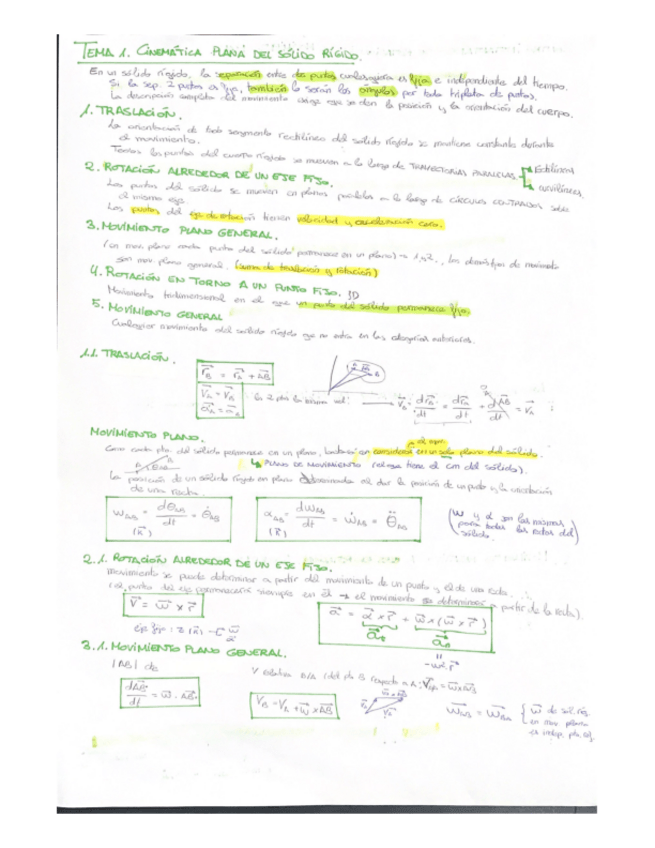 TEMA 1. CINEMÁTICA PLANA DEL SÓLIDO RÍGIDO.
En un sólido rígido, la separación entre dos puntos cualesquiera es fija e independiente del tiempo.
Si la sep. 2 puntos es fija, también lo serán los ángulos por toda tripleta de puntos.
La descripción completa del movimiento exige que se den la posición y la orientación del cuerpo.
1. TRASLACIÓN.
La orientación de todo segmento rectilíneo del sólido rígido se mantiene constante durante
el movimiento.
Todos los puntos del cuerpo rígido se mueven a lo largo de TRAYECTORIAS PARALELAS
Rectilíneas
curvilíneas.
2. ROTACIÓN ALREDEDOR DE UN EJE FIJO.
Los puntos del sólido se mueven en planos paralelos a lo largo de CÍRCULOS CENTRADOS sobre
el mismo eje.
Los puntos del eje de rotación tienen velocidad y aceleración cero.
3. MOVIMIENTO PLANO GENERAL.
(en mov. plano cada punto del sólido permanece en un plano)
son mov. plano general. (suma de traslación y rotación)
4. ROTACIÓN EN TORNO A UN PUNTO FIJO. 3D
Movimiento tridimensional en el que un punto del sólido permanece fijo.
5. MOVIMIENTO GENERAL
Cualquier movimiento del sólido rígido que no entra en las categorías anteriores.
1.1. TRASLACIÓN.
r⃗B = r⃗A + AB⃗
v⃗A = v⃗B
a⃗A = a⃗B
los 2 pto la misma vel: → v⃗B = dr⃗B/dt = dr⃗A/dt + dAB⃗/dt = v⃗A ;
MOVIMIENTO PLANO.
Como cada pto. del sólido permanece en un plano, bastará en considerar el mov. en un solo plano del sólido.
↳ PLANO DE MOVIMIENTO (el que tiene el cm del sólido).
La posición de un sólido rígido en plano determinada al dar la posición de un punto y la orientación
de una recta.
ωAB = dθAB/dt = θ̇AB
(k⃗)
αAB = dωAB/dt = ω̇AB = θ̈AB
(k⃗)
(ω y α son las mismas
para todas las rectas del
sólido.)
2.1. ROTACIÓN ALREDEDOR DE UN EJE FIJO.
Movimiento se puede determinar a partir del movimiento de un punto y el de una recta.
(el punto del eje permanecerá siempre en él → el movimiento se determinará a partir de la recta).
v⃗ = ω⃗ x r⃗
a⃗ = α⃗ x r⃗ + ω⃗ x (ω⃗ x r⃗)
eje fijo: z (k⃗)
-ω². r⃗
3.1. MOVIMIENTO PLANO GENERAL.
|AB| cte
V relativa B/A (del pto B respecto a A: v⃗B/A = ω⃗ x AB⃗
dAB⃗/dt = ω⃗ . AB⃗
v⃗B = v⃗A + ω⃗ x AB⃗
ω⃗AB = ω⃗BA { ω⃗ de sól. ríg.
en mov plano
es indep. pto.